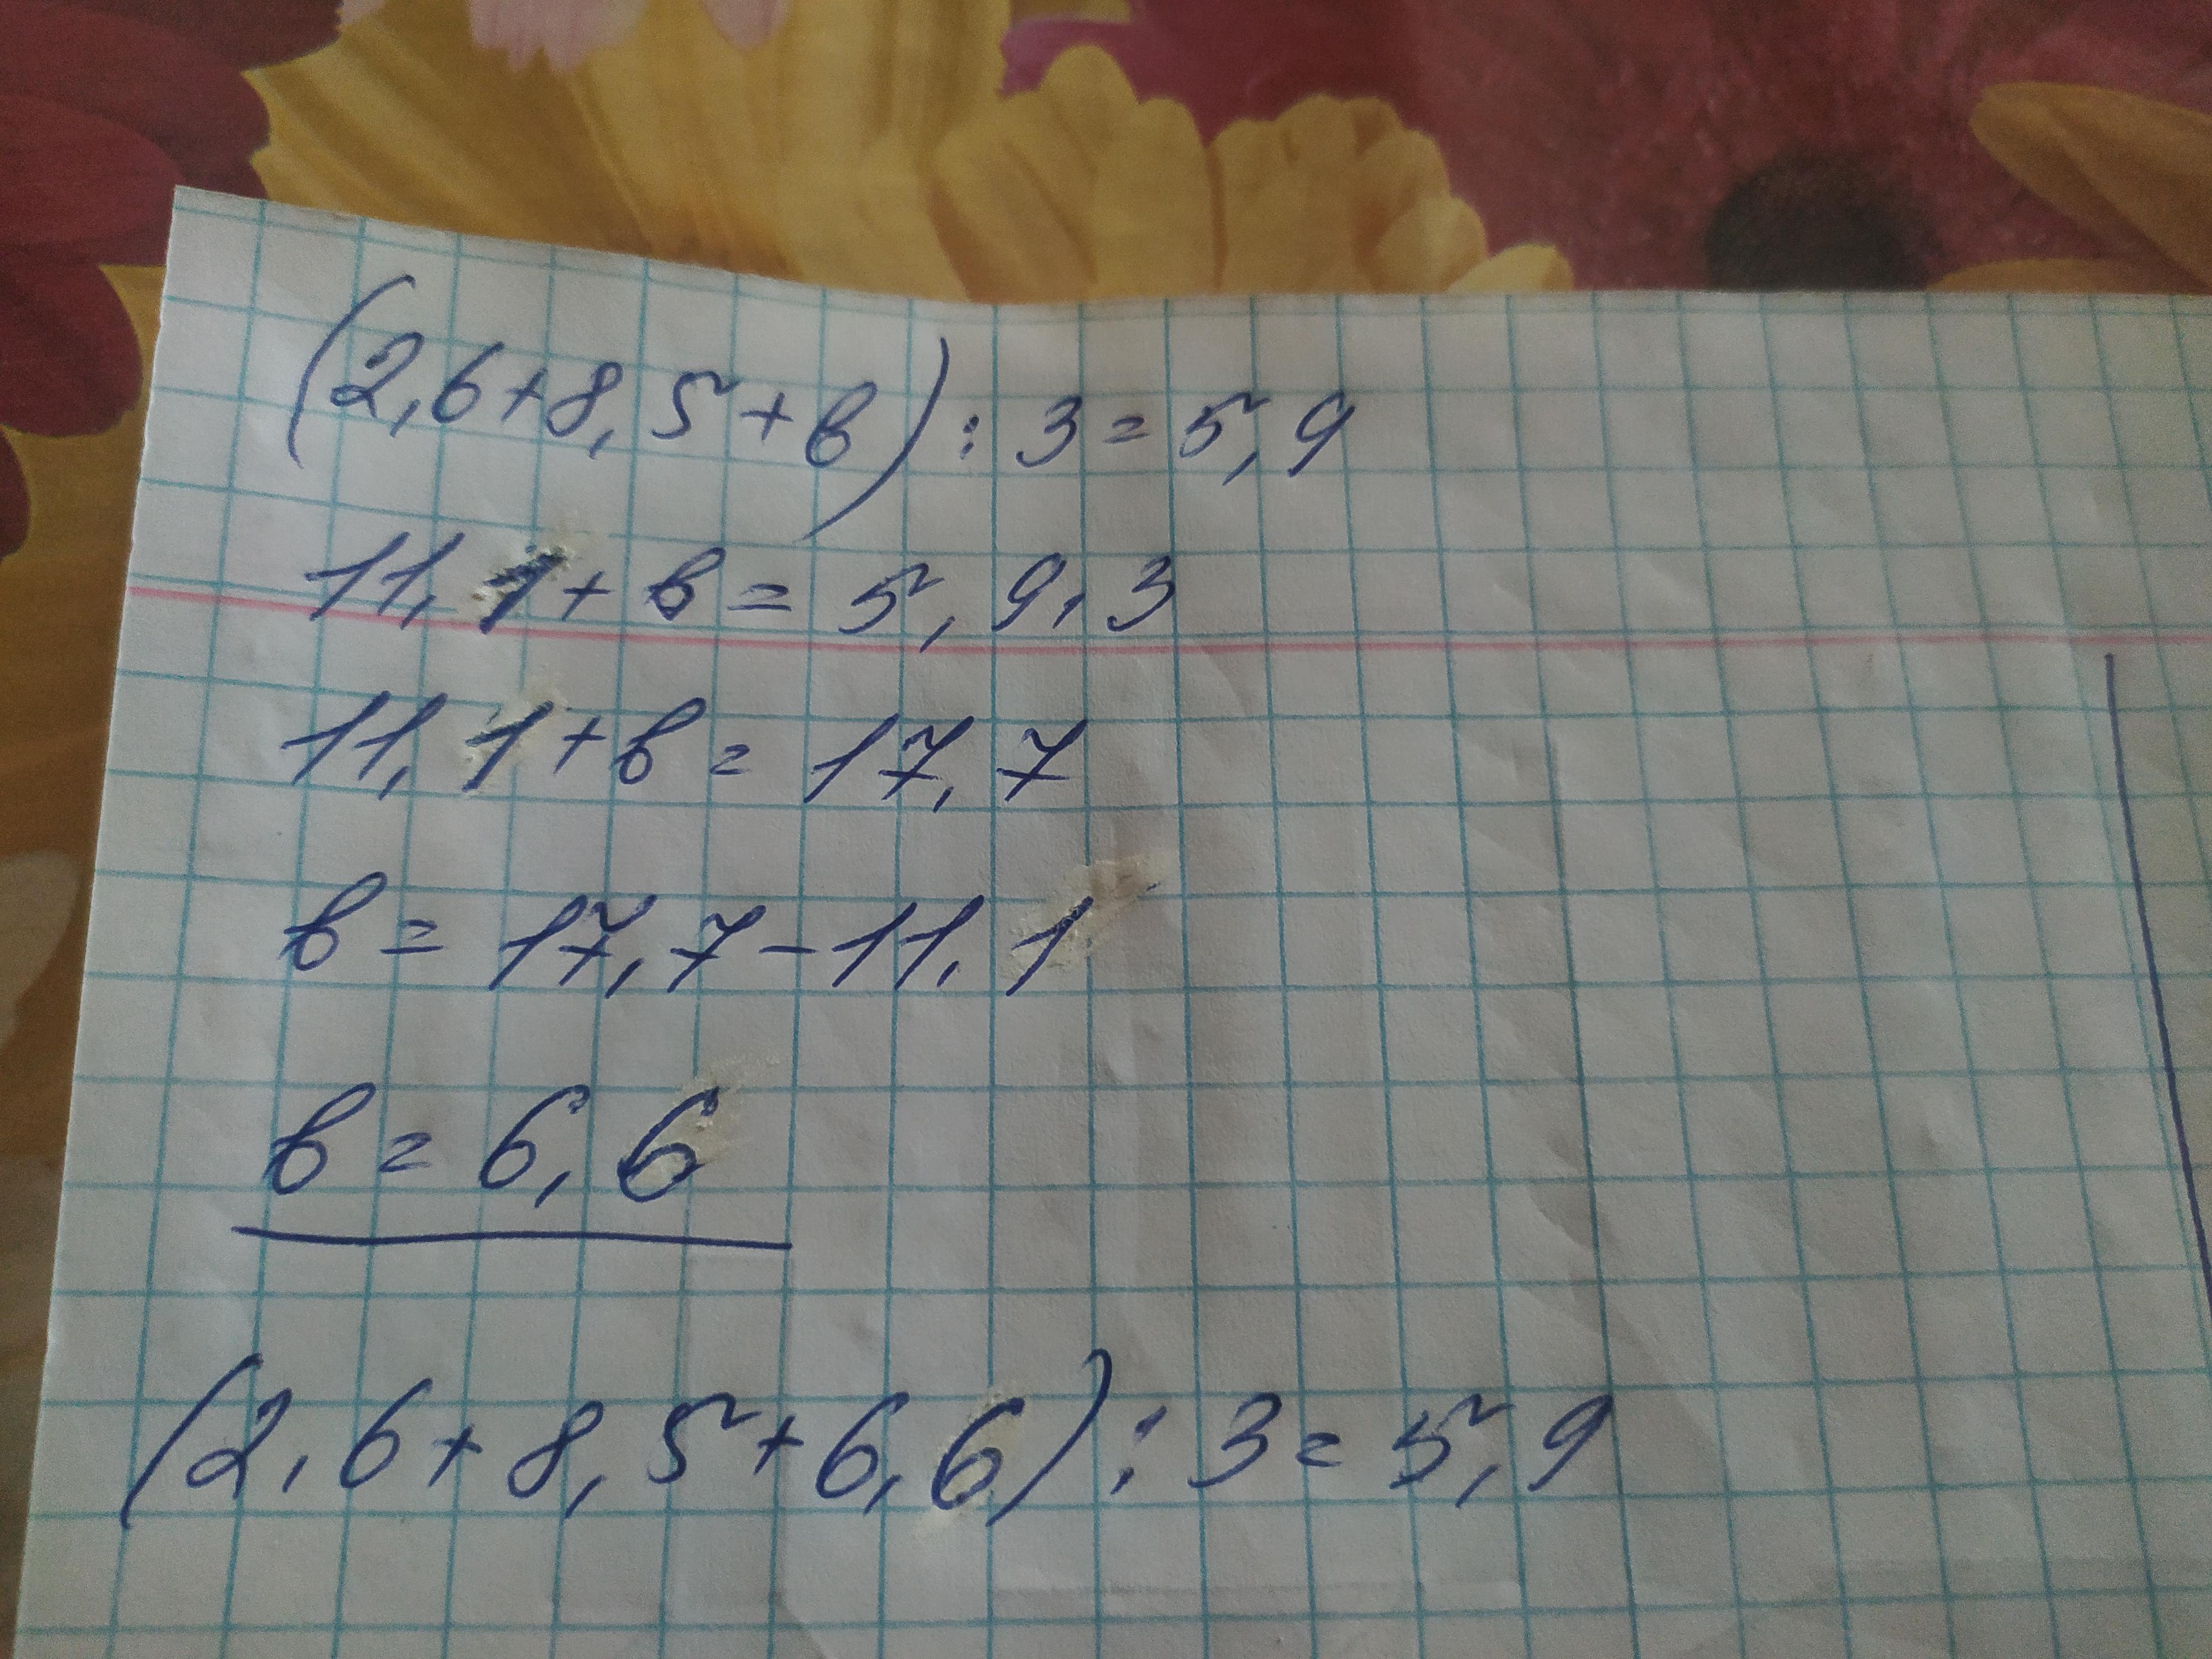 (2,6+8,5+в):3=5,9
11,1+в=5,9·3
11,1+в=17,7
в=17,7-11,1
в=6,6
(2,6+8,5+6,6):3=5,9